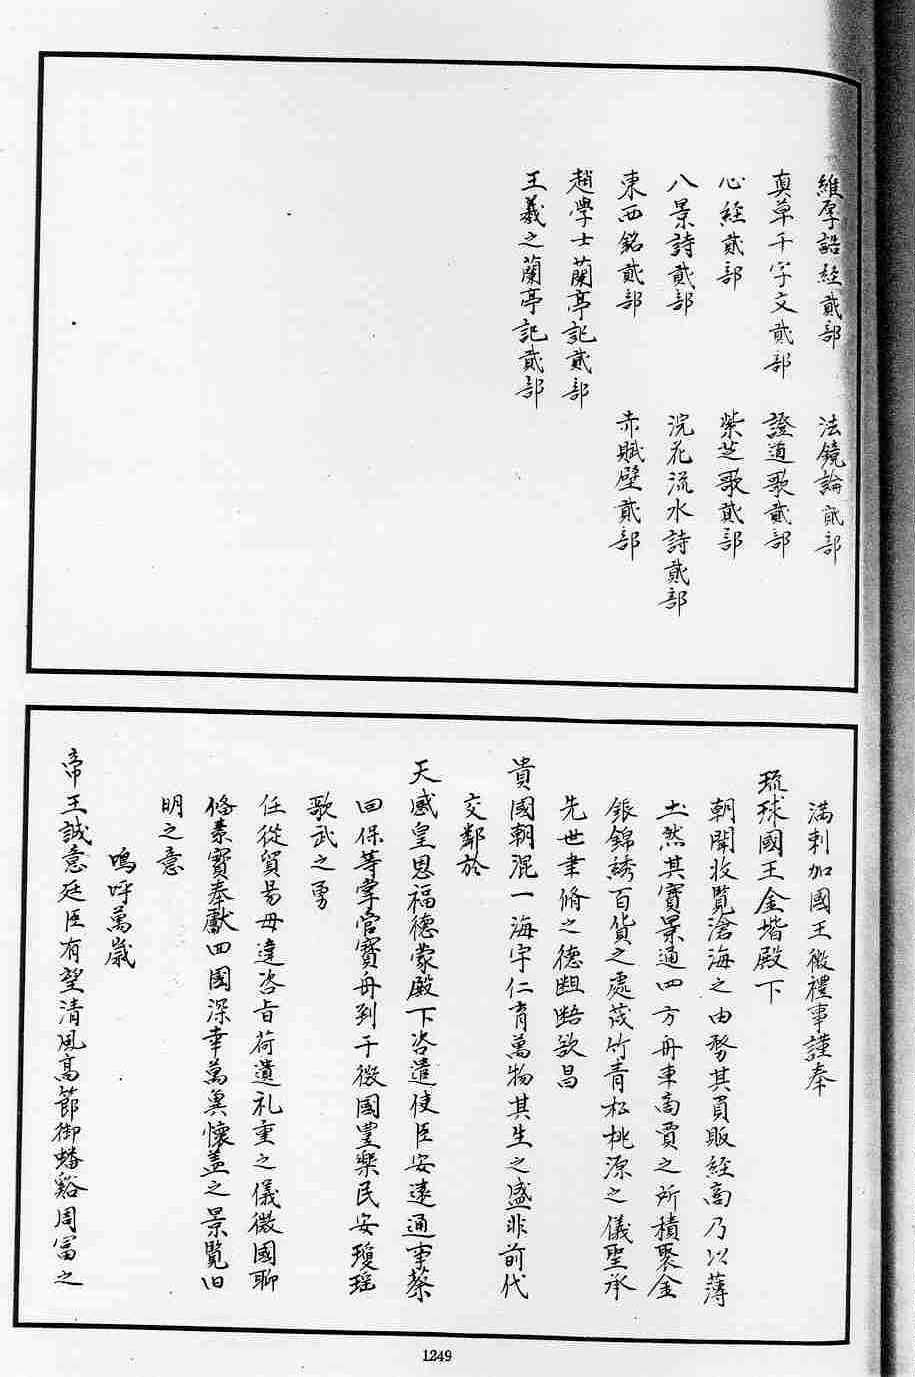 維摩詰經貳部　法鏡論貳部
真草千字文貳部　證道歌貳部
心經貳部　紫芝歌貳部
八景詩貳部　浣花流水詩貳部
東西銘貳部　赤賦壁貳部
趙學士蘭亭記貳部
王羲之蘭亭記貳部
滿剌加國王微禮事謹奉
琉球國王金堦殿下
朝聞收覽滄海之由務其買販經商乃以薄
土然其寶景通四方舟車商賈之所積聚金
銀錦綉百貨之處茂竹青松桃源之儀聖承
先世聿脩之德歆昌
貴國朝混一海宇仁育萬物其生之盛非前代
交鄰於
天感皇恩福德蒙殿下咨遣使臣安遠通事蔡
回保等掌管寶舟到于微國豐樂民安瓊瑤
歌武之勇
任從貿易毋違咨旨荷遺礼重之儀微國聊
俻素寶奉獻四國深幸萬冀懷盖之景覽旧
明之意
嗚呼萬歲
帝王誠意廷臣有望清風高節御蟠谿周富之
1249